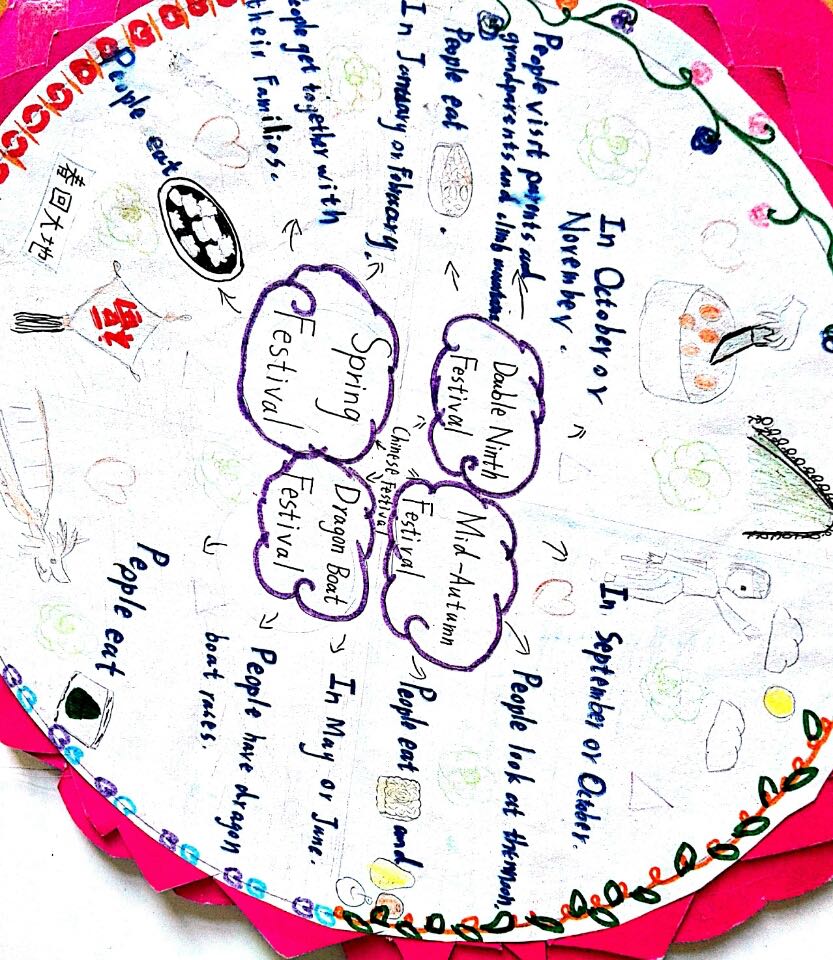 Chinese Festival
Spring
Festival
In January or February.
People get together with
their Families.
People eat
春回大地
福
Double Ninth
Festival
In October or
November.
People visit parents and
grandparents and climb mountains
People eat
.
Mid-Autumn
Festival
In September or October.
People look at the moon.
People eat
and
Dragon Boat
Festival
In May or June.
People have dragon
boat races.
People eat